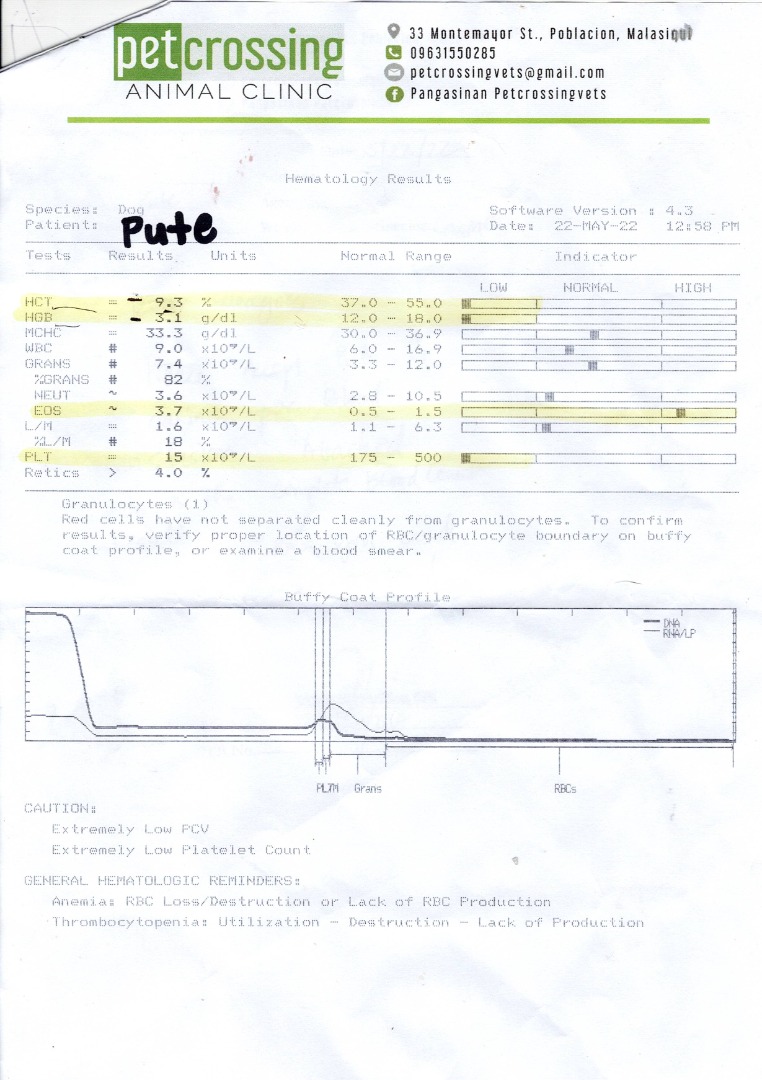 petcrossing
ANIMAL CLINIC
33 Montemayor St., Poblacion, Malasiqui
09631550285
petcrossingvets@gmail.com
Pangasinan Petcrossingvets
Hematology Results
Species: Dog
Software Version : 4.3
Patient: Pute
Date: 22-MAY-22 12:58 PM
Tests Results Units Normal Range Indicator
LOW NORMAL HIGH
HCT = 9.3 % 37.0 - 55.0
HGB = 3.1 g/dl 12.0 - 18.0
MCHC = 33.3 g/dl 30.0 - 36.9
WBC # 9.0 x10⁹/L 6.0 - 16.9
GRANS # 7.4 x10⁹/L 3.3 - 12.0
%GRANS # 82 %
NEUT ~ 3.6 x10⁹/L 2.8 - 10.5
EOS ~ 3.7 x10⁹/L 0.5 - 1.5
L/M = 1.6 x10⁹/L 1.1 - 6.3
%L/M # 18 %
PLT = 15 x10⁹/L 175 - 500
Retics > 4.0 %
Granulocytes (1)
Red cells have not separated cleanly from granulocytes. To confirm
results, verify proper location of RBC/granulocyte boundary on buffy
coat profile, or examine a blood smear.
Buffy Coat Profile
DNA
RNA/LP
Grans RBCs
CAUTION:
Extremely Low PCV
Extremely Low Platelet Count
GENERAL HEMATOLOGIC REMINDERS:
Anemia: RBC Loss/Destruction or Lack of RBC Production
Thrombocytopenia: Utilization - Destruction - Lack of Production